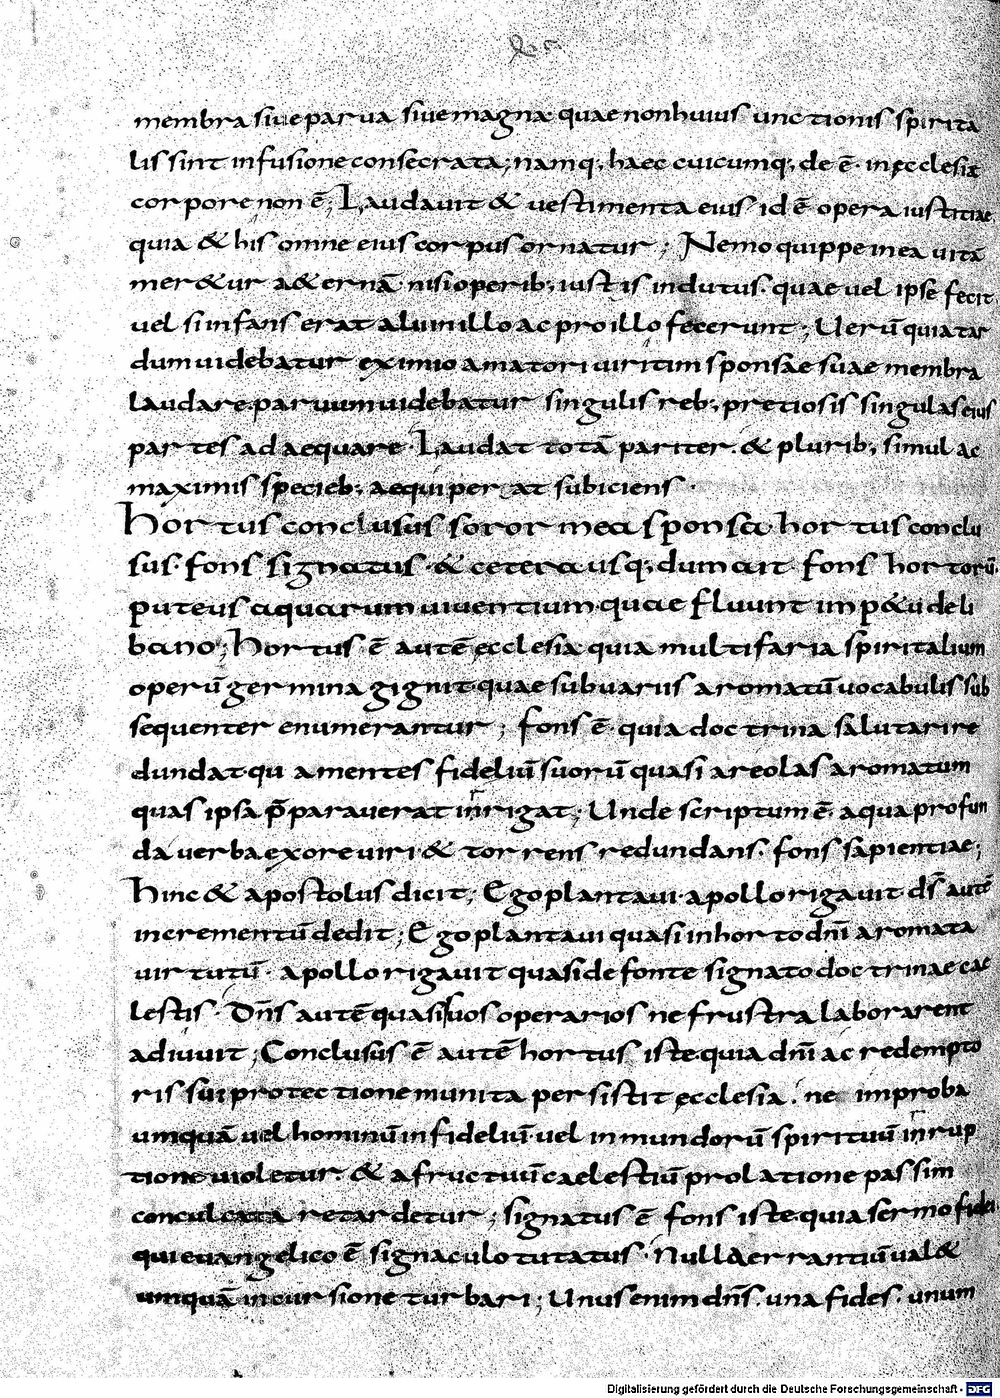 membra siue parua siue magna quae non huius unctionis spirita
lis sint infusione consecrata; namq; haec cuicumq; de ē in ęcclesiæ
corpore non ē; Laudauit & uestimenta eius id ē opera iustitiae
quia & his omne eius corpus ornatur; Nemo quippe in ea uitā
mer&ur a&ernā nisi operib; iustis indutus. quae uel ipse fecit
uel si infans erat alii in illo ac pro illo fecerunt; Uerū quia tar
dum uidebatur eximio amatori uiritim sponsae suae membra
laudare. paruum uidebatur singulis reb; pretiosis singulas eius
partes adaequare. Laudat totā pariter. & plurib; simul ac
maximis specieb; aequiperat subiciens.
Hortus conclusus soror mea sponsa hortus conclu
sus. fons signatus. & cetera usq; dum ait fons hortorū.
puteus aquarum uiuentium quae fluunt imp&u de li
bano; Hortus ē autē ecclesia quia multifaria spiritalium
operū germina gignit. quae sub uariis aromatū uocabulis sub
sequenter enumerantur; fons ē. quia doctrina salutari re
dundat qua mentes fideliū suorū quasi areolas aromatum
quas ipsa p̄parauerat inrigat; Unde scriptum ē. aqua profun
da uerba ex ore uiri & torrens redundans. fons sapientiae;
Hinc & apostolus dicit; Ego plantaui. apollo rigauit. d̄s autē
incrementū dedit; Ego plantaui quasi in horto dn̄i aromata
uirtutū. apollo rigauit quasi de fonte signato doctrinae cae
lestis. Dn̄s autē quasi suos operarios ne frustra laborarent
adiuuit; Conclusus ē autē hortus iste. quia dn̄i ac redempto
ris sui protectione munita persistit ęcclesia. ne improba
umquā uel hominū infideliū uel inmundorū spirituū inrup
tione uioletur. & a fructuū caelestiū prolatione passim
conculcata retardetur; signatus ē fons iste. quia sermo fidei
qui euangelico ē signaculo tutatus. Nulla errantiū ual&
umquā incursione turbari; Unus enim dn̄s. una fides. unum
Digitalisierung gefördert durch die Deutsche Forschungsgemeinschaft - DFG